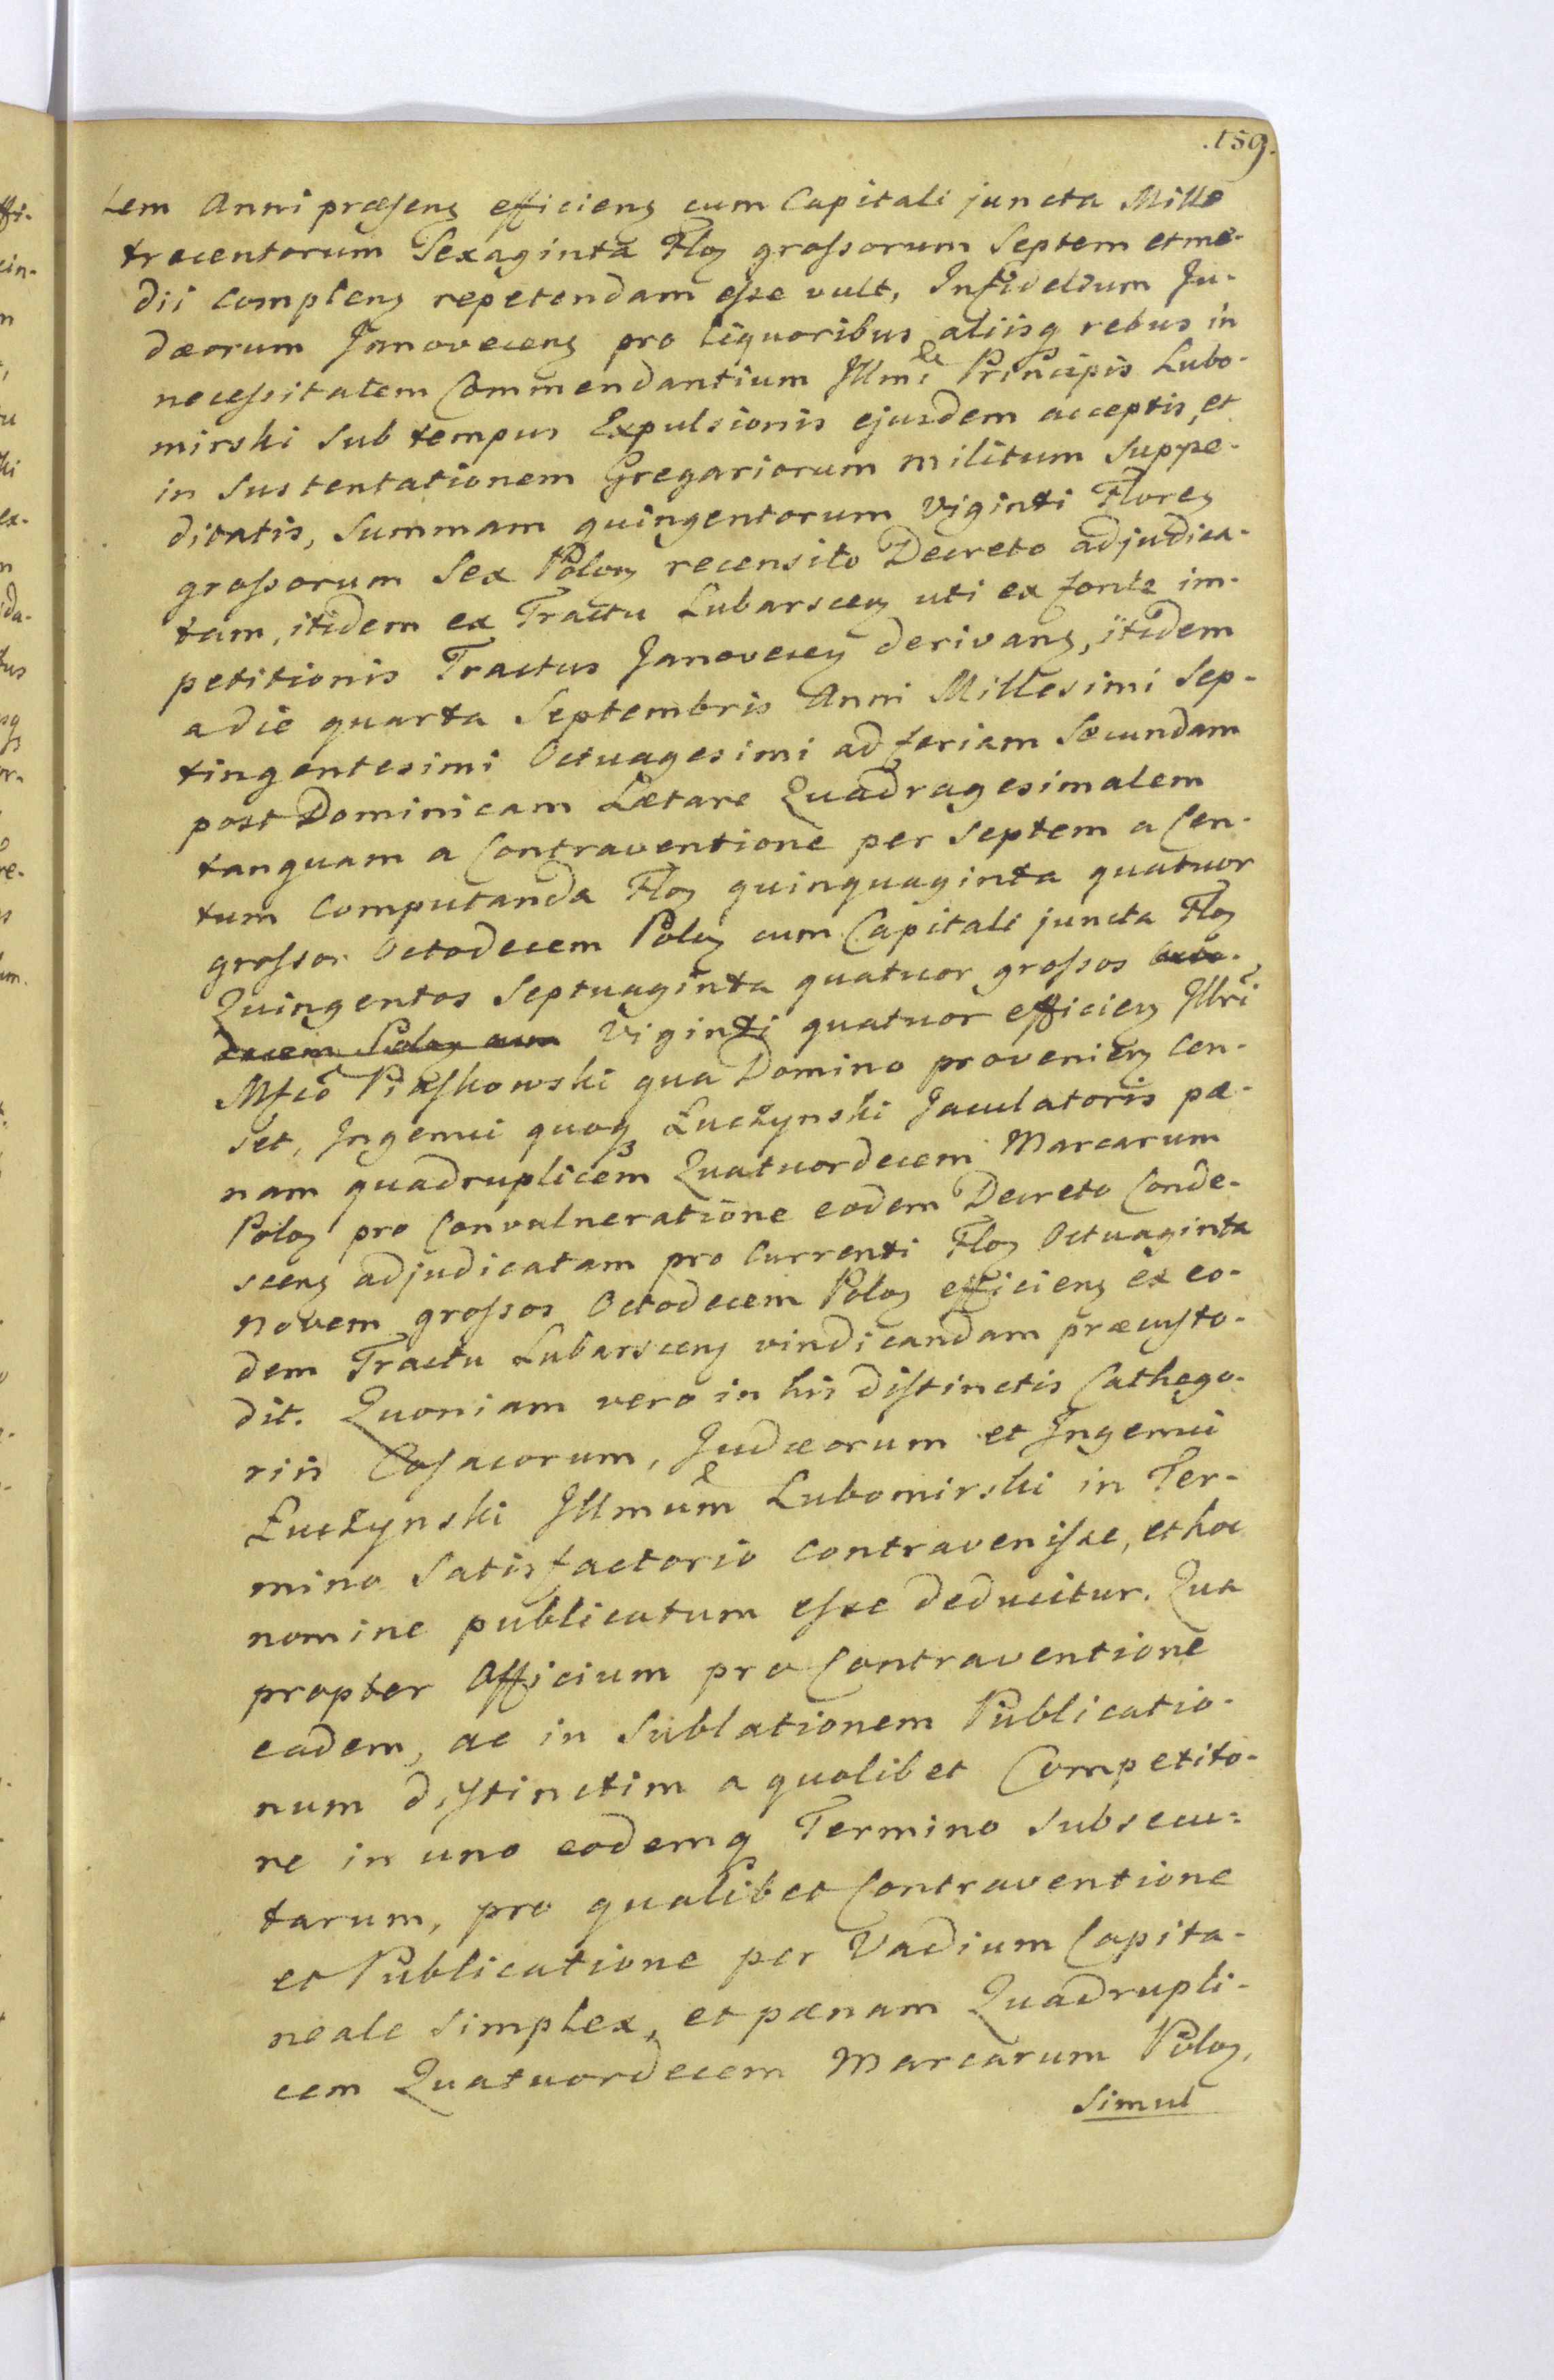 .159.
lem Anni præsens efficiens cum Capitali juncta Mille
trecentorum Sexaginta Floꝝ grossorum Septem et me-
dii complens repetendam esse vult, Infidelium Ju-
dæorum Janovecens pro liquoribus aliisqꝫ rebus in
necessitatem Commendantium Illmi Principis Lubo-
mirski sub tempus Expulsionis ejusdem acceptis, et
in sustentationem Gregariorum militum suppe-
ditatis, summam quingentorum Viginti Floreꝝ
grossorum Sex Poloꝝ recensito Decreto adjudica-
tam, itidem ex Tractu Lubarsceꝝ uti ex fonte im-
petitionis Tractus Janoveceꝝ derivans, itidem
a die quarta Septembris Anni Millesimi Sep-
tingentesimi Octuagesimi ad feriam Secundam
post Dominicam Lætare Quadragesimalem
tanquam a Contraventione per Septem a Cen-
tum computanda Floꝝ quinquaginta quatuor
grossor Octodecem Poloꝝ cum Capitali juncta Floꝝ
Quingentos Septuaginta quatuor grossos octo-
decem Poloꝝ cum Viginti quatuor efficieꝝ Illri
Mfco Piaskowski qua Domino provenieꝝ Cen-
set, Ingenui quoqꝫ Łuczynski Jaculatoris pæ-
nam quadruplicem Quatuordecem Marcarum
Poloꝝ pro Convulneratione eodem Decreto Conde-
scens adjudicatam pro Currenti Floꝝ Octuaginta
novem grossos Octodecem Poloꝝ efficiens ex eo-
dem Tractu Lubarscens vindicandam præcusto-
dit. Quoniam vero in his distinctis Cathego-
riis Cosacorum, Judæorum et Ingenui
Łuczynski Illmum Lubomirski in Ter-
mino Satisfactorio contravenisse, et hoc
nomine publicatum esse deducitur. Qua
propter Officium pro Contraventione
eadem, ac in Sublationem Publicatio-
num distinctim a quolibet Competito-
re in uno eodemqꝫ Termino subsecu-
tarum, pro qualibet Contraventione
et Publicatione per Vadium Capita-
neale simplex, et pænam Quadrupli-
cem Quatuordecem Marcarum Poloꝝ,
Simul